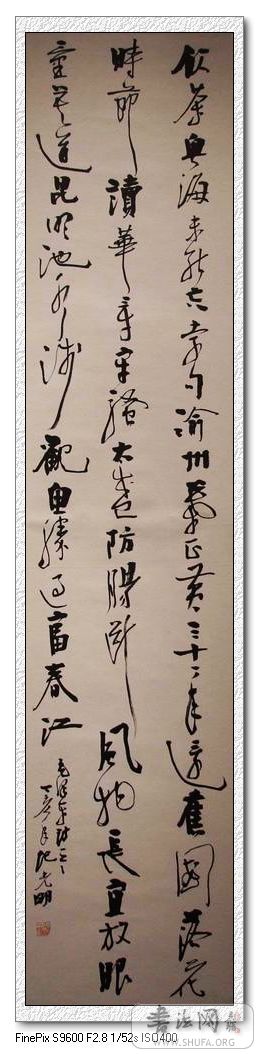 飲茶粵海未能忘索句渝州葉正黃三十一年還舊國落花
時節讀華章牢騷太盛防腸斷風物長宜放眼
量莫道昆明池水淺觀魚勝過富春江
毛澤東詩一首
丁亥年 光明
书法网
WWW.SHUFA.ORG
FinePix S9600 F2.8 1/52s ISO400